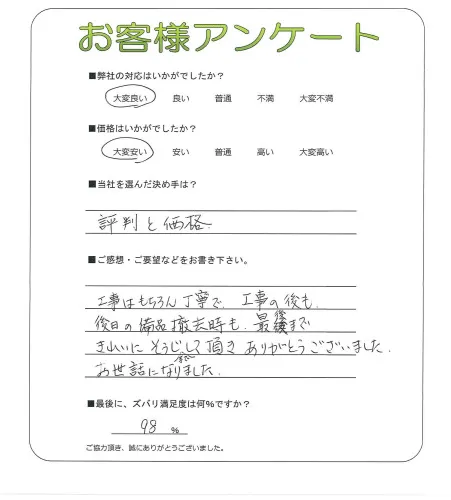 お客様アンケート
■弊社の対応はいかがでしたか？
大変良い 良い 普通 不満 大変不満
■価格はいかがでしたか？
大変安い 安い 普通 高い 大変高い
■当社を選んだ決め手は？
評判と価格
■ご感想・ご要望などをお書き下さい。
工事はもちろん丁寧で、工事の後も、
後日の備品撤去時も、最後まで
きれいにそうじして頂きありがとうございました。
お世話になりました。
■最後に、ズバリ満足度は何％ですか？
98 ％
ご協力頂き、誠にありがとうございました。